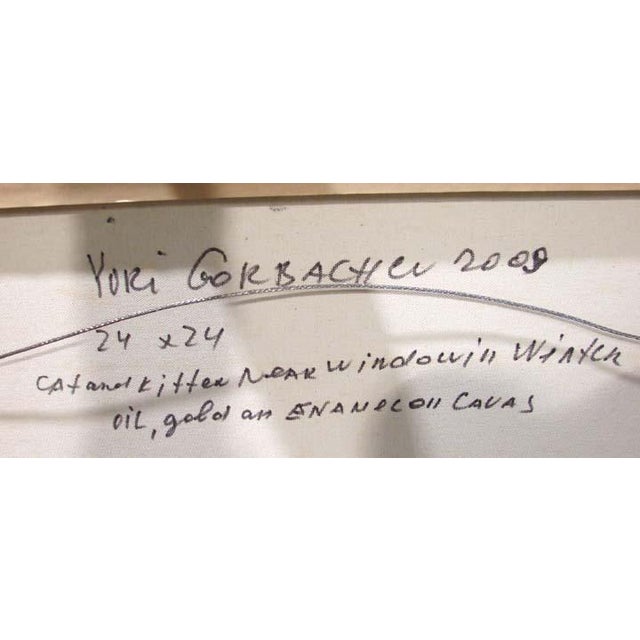 Yuri GORBACHEV 2009
24 x 24
Cat and kitten Near window in Winter
oil, gold an ENAMEL on CAVAS